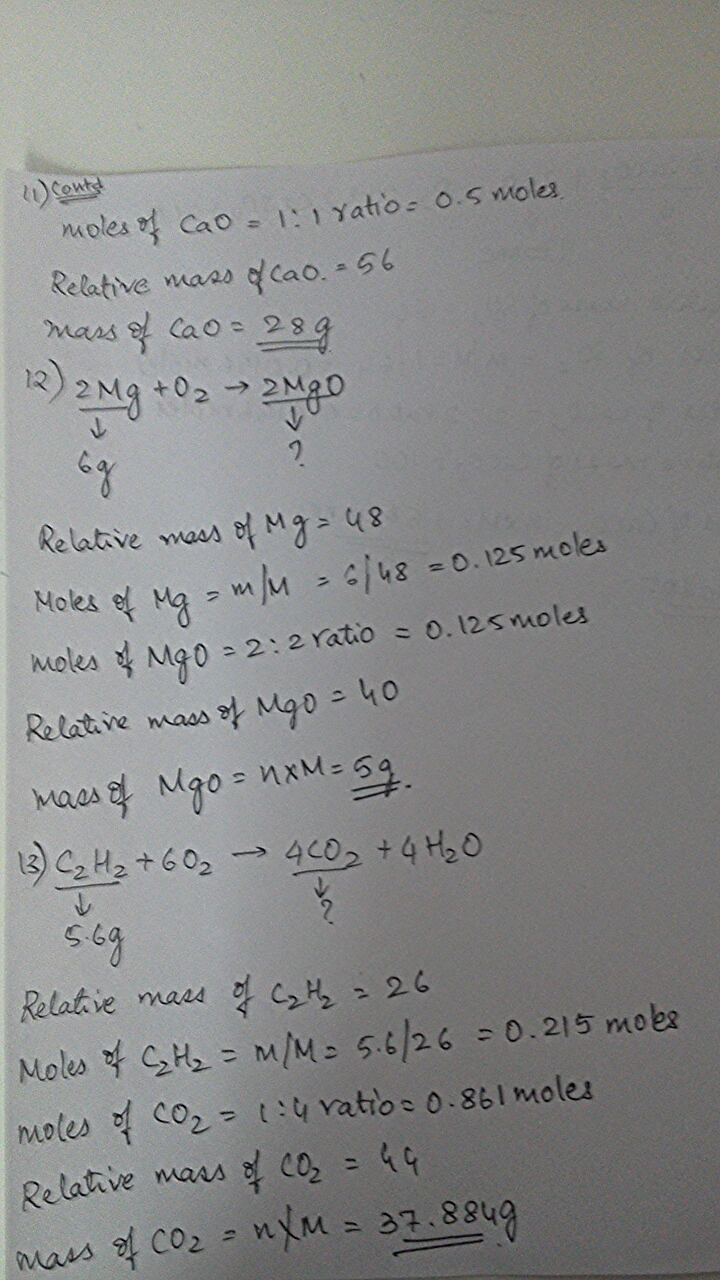 11) Contd
moles of CaO = 1:1 ratio = 0.5 moles.
Relative mass of CaO. = 56
mass of CaO = 28g
12) 2Mg + O₂ → 2MgO
↓ ↓
6g ?
Relative mass of Mg = 48
Moles of Mg = m/M = 6/48 = 0.125 moles
moles of MgO = 2:2 ratio = 0.125 moles
Relative mass of MgO = 40
mass of MgO = n×M = 5g.
13) C₂H₂ + 6O₂ → 4CO₂ + 4H₂O
↓ ↓
5.6g ?
Relative mass of C₂H₂ = 26
Moles of C₂H₂ = m/M = 5.6/26 = 0.215 moles
moles of CO₂ = 1:4 ratio = 0.861 moles
Relative mass of CO₂ = 44
mass of CO₂ = n×M = 37.884g